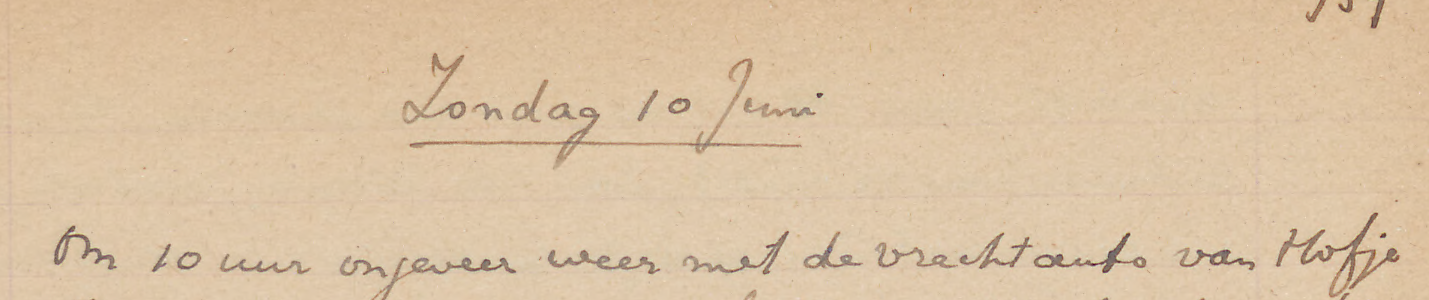 Zondag 10 Juni
Om 10 uur ongeveer weer met de vrachtauto van Hofje